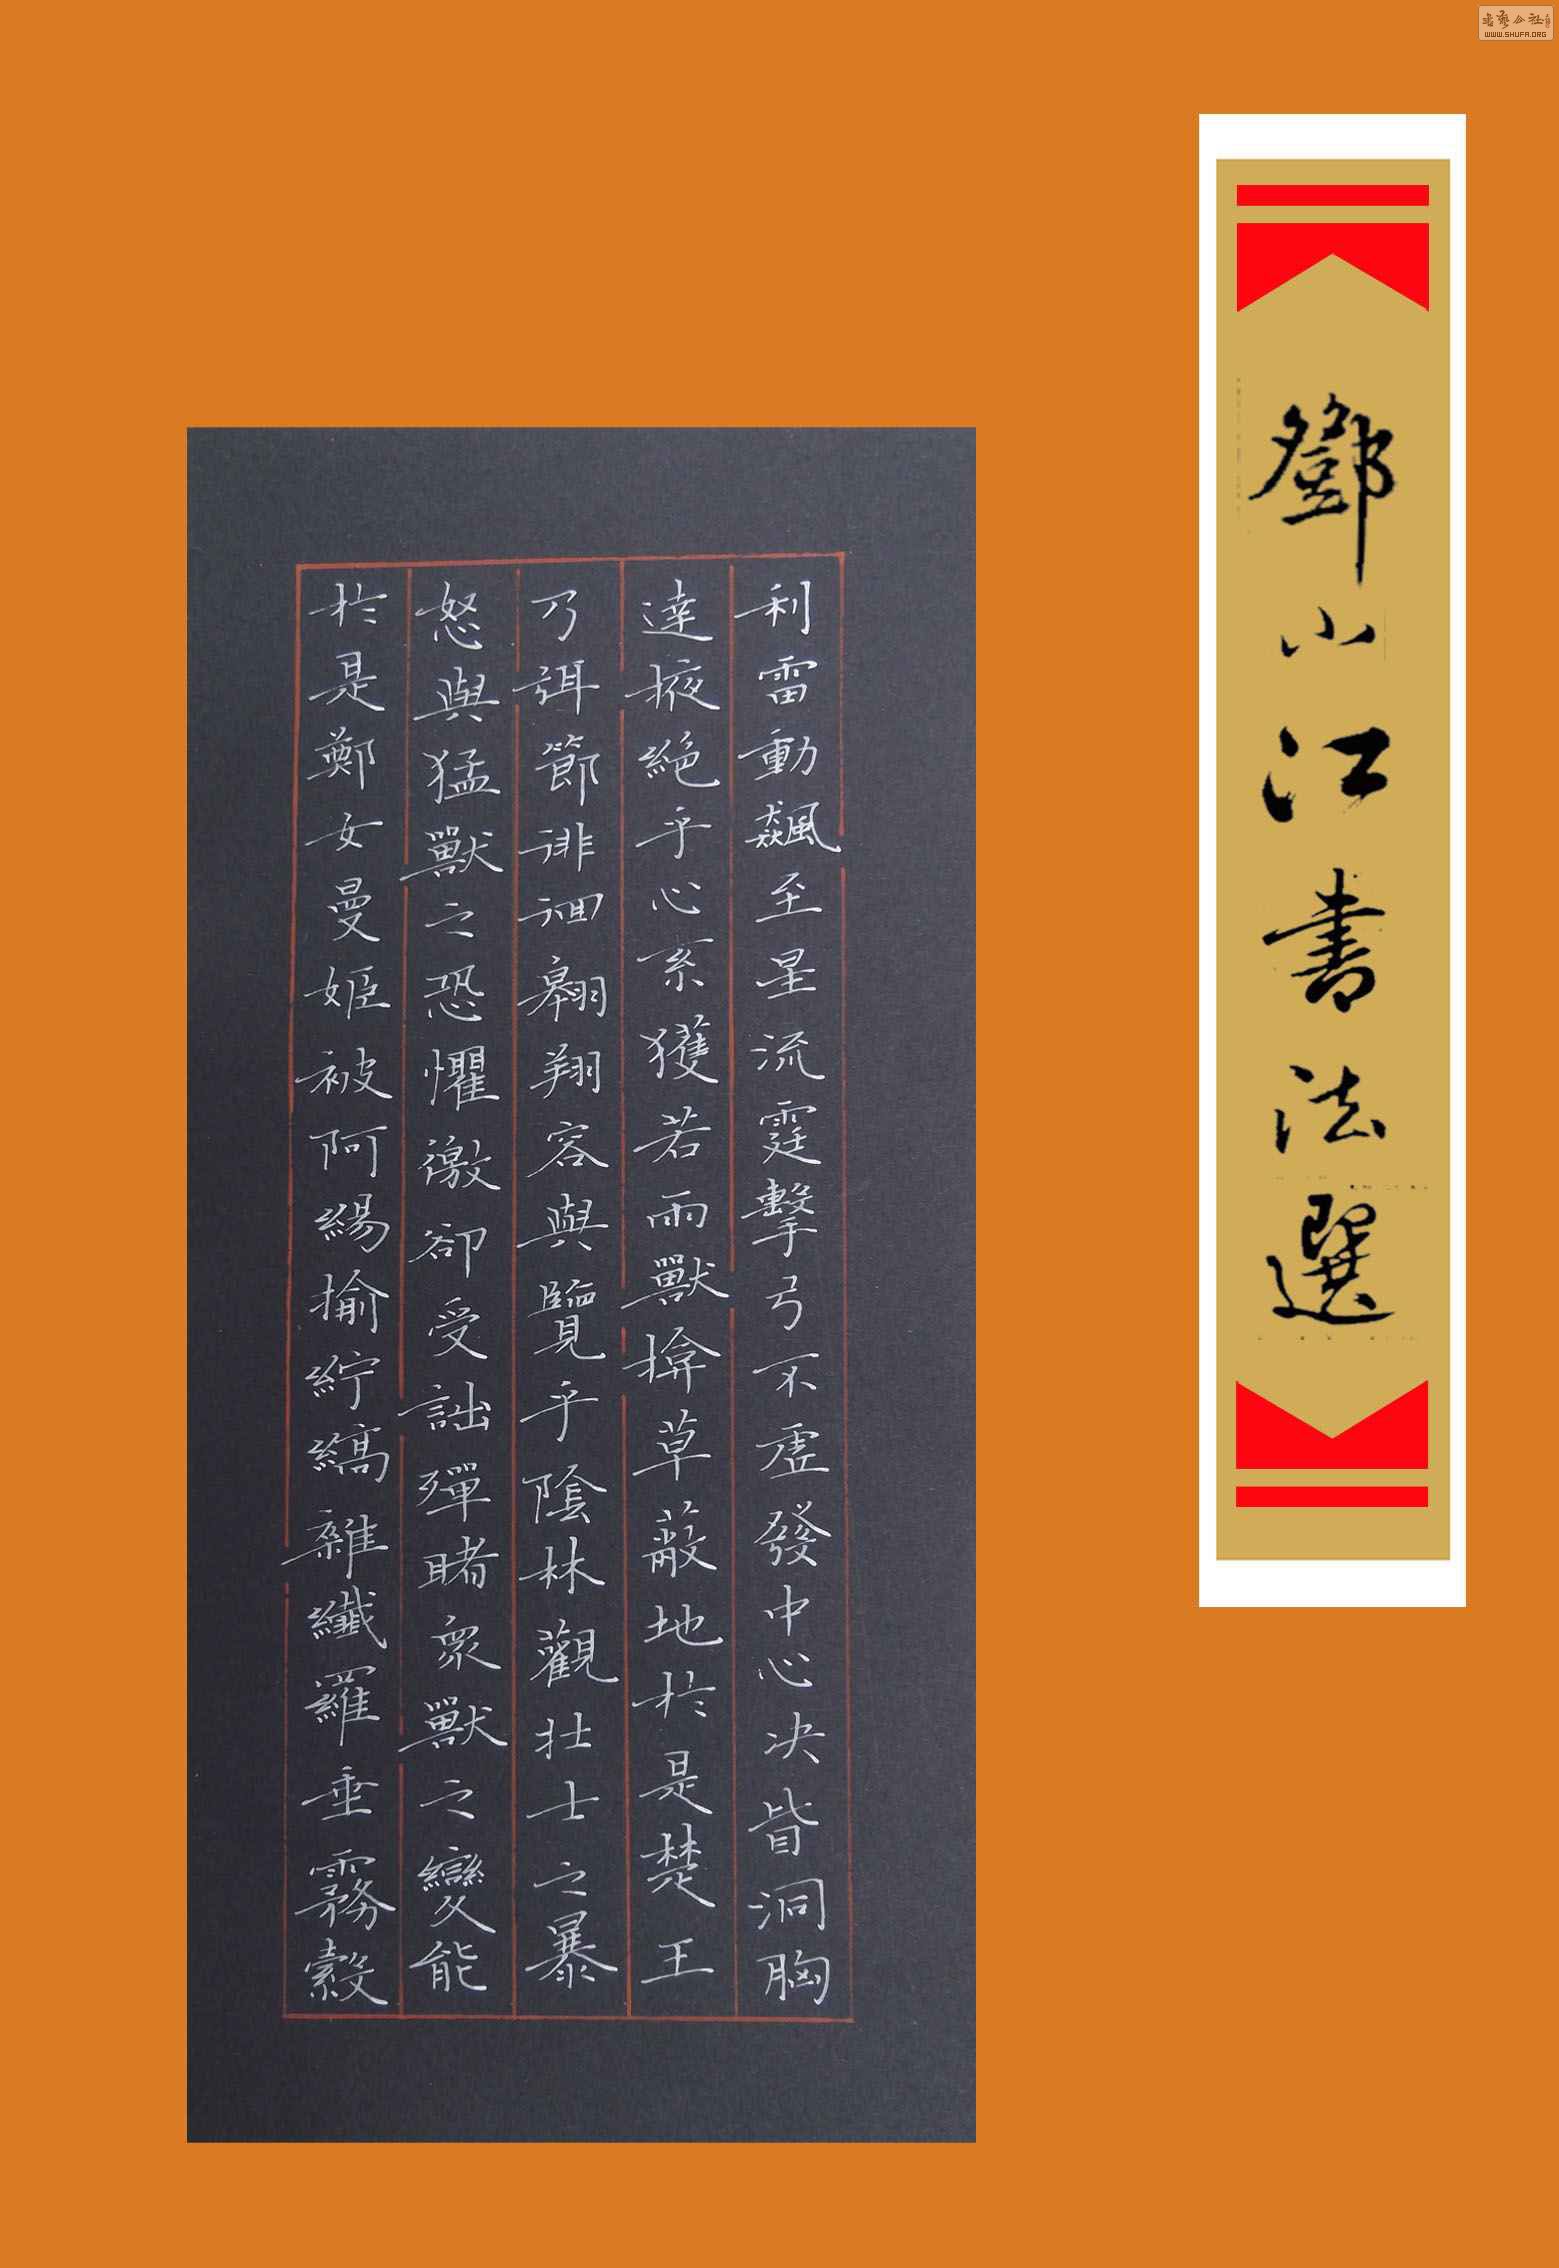 鄧小江書法選
利雷動飆至星流霆擊弓不虛發中心决眥洞胸
達掖絕乎心系獲若雨獸揜草蔽地於是楚王
乃弭節徘徊翱翔容與覽乎陰林觀壯士之暴
怒與猛獸之恐懼徼郤受詘殫睹衆獸之變能
於是鄭女曼姬被阿緆揄紵縞雜纖羅垂霧縠
WWW.SHUFA.ORG